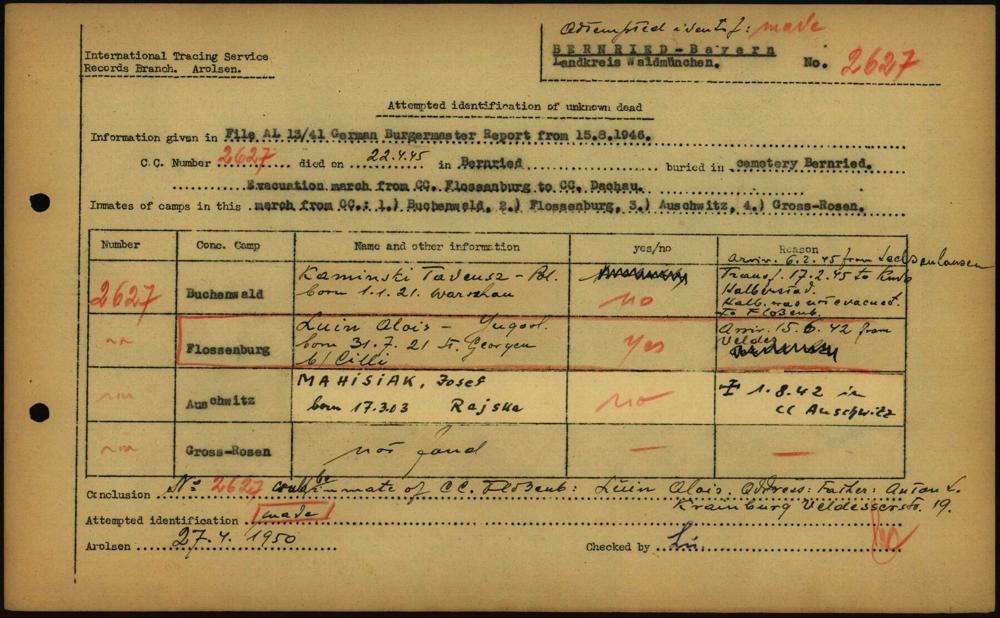 Attempted identif: made
International Tracing Service
Records Branch. Arolsen.
BERNRIED-Bayern
Landkreis Waldmünchen.
No. 2627
Attempted identification of unknown dead
Information given in File AL 13/41 German Burgermaster Report from 15.8.1946.
C.C. Number 2627 died on 22.4.45 in Bernried buried in cemetery Bernried.
Evacuation march from CC. Flossenburg to CC. Dachau.
Inmates of camps in this march from CC.: 1.) Buchenwald, 2.) Flossenburg, 3.) Auschwitz, 4.) Gross-Rosen.
Number Conc. Camp Name and other information yes/no Reason
2627 Buchenwald
Kaminski Tadeusz - Pol.
born 1.1.21. Warschau
no
Arriv. 6.2.45 from Sachsenhausen
Transf. 17.2.45 to Kdo
Halberstad.
Halb. was not evacuat.
to Floßenb.
~~ Flossenburg
Luin Alois - Yugosl.
born 31.7.21 St. Georgen
b/ Cilli
yes
Arriv. 15.6.42 from
Veldes
~~ Auschwitz
MAHISIAK, Josef
born 17.3.03 Rajska
no
1.8.42 in
CC Auschwitz
~~ Gross-Rosen
not found
—
—
Conclusion No 2627 could be inmate of CC. Floßenb: Luin Alois. Address: Father: Anton L.
Krainburg Veldesserstr. 19.
Attempted identification made
Arolsen 27.4.1950
Checked by Lü.